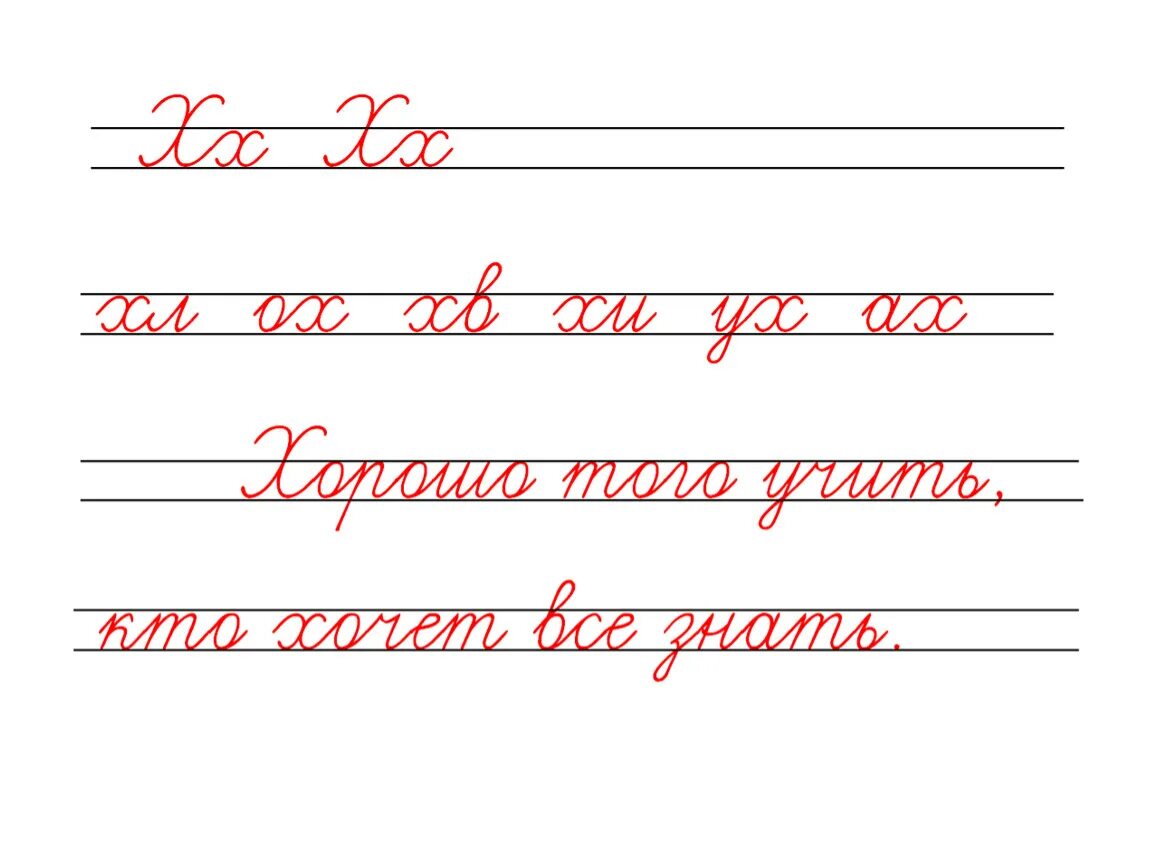 Хх Хх
хл ох хв хи ух ах
Хорошо того учить,
кто хочет все знать.